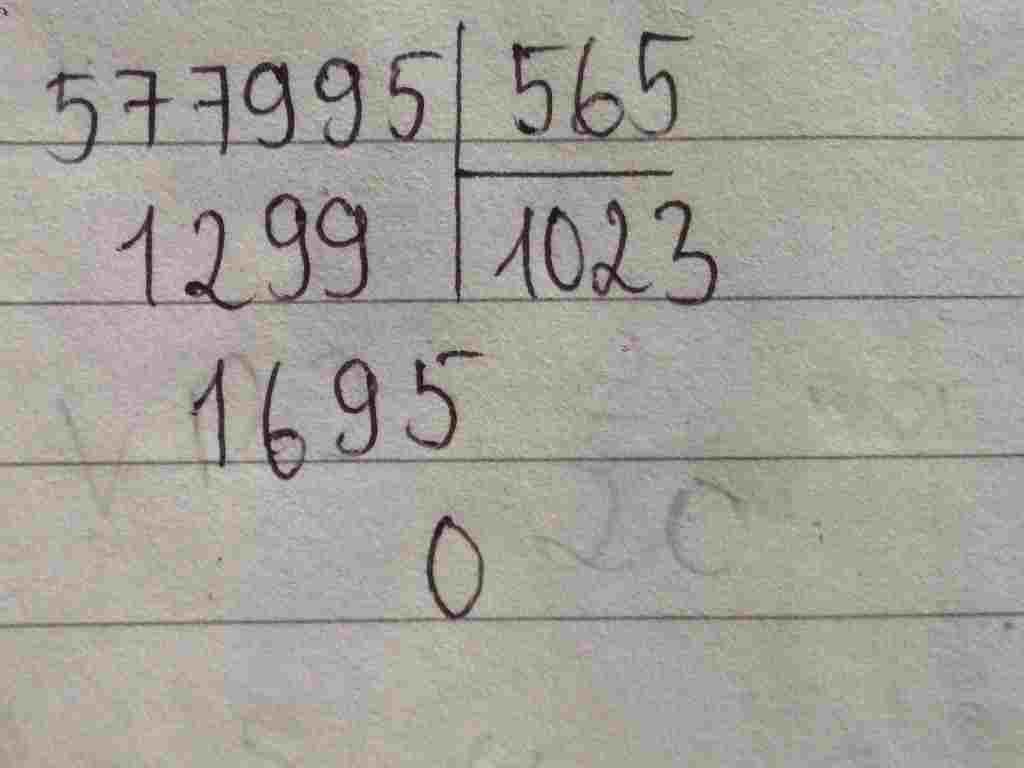 577995 565
1299 1023
1695
0